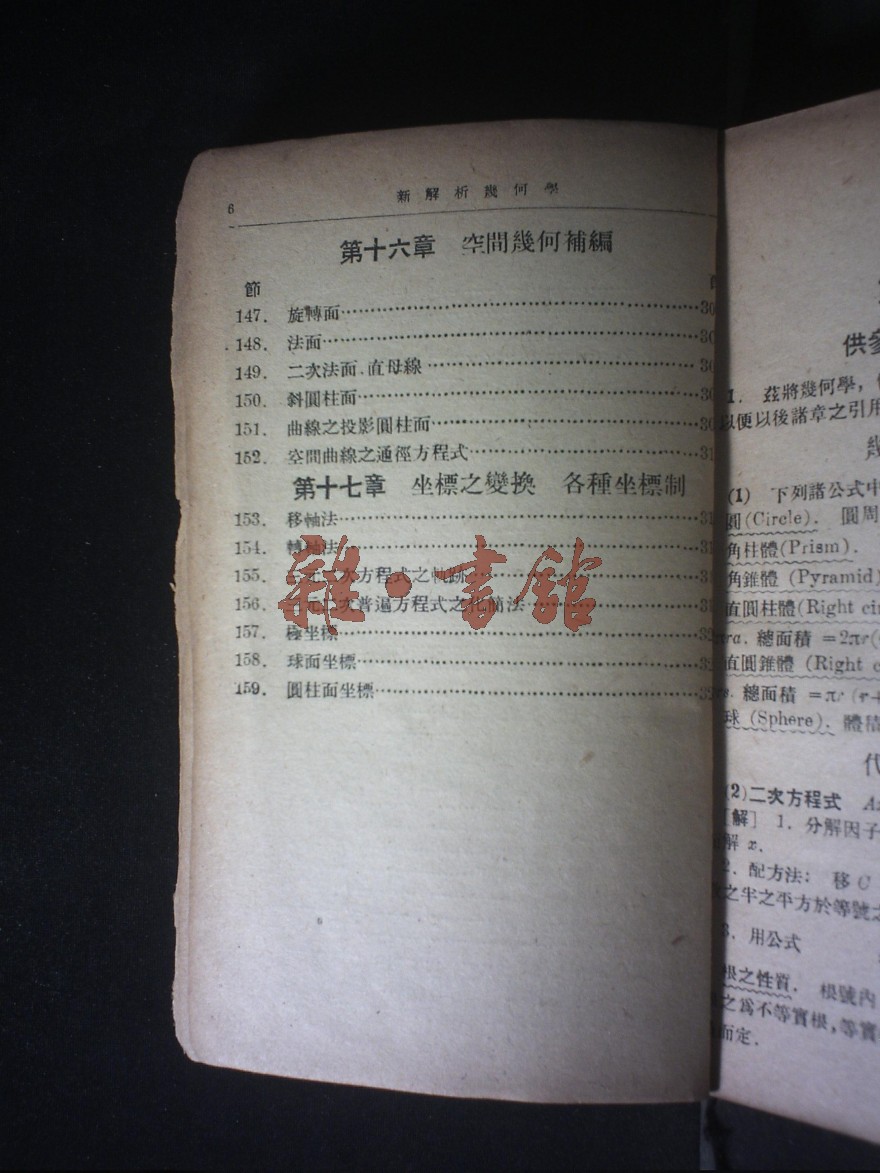 6
新解析幾何學
第十六章 空間幾何補編
節
147. 旋轉面……30
148. 法面……30
149. 二次法面、直母線……30
150. 斜圓柱面……30
151. 曲線之投影圓柱面……30
152. 空間曲線之通徑方程式……31
第十七章 坐標之變換 各種坐標制
153. 移軸法……31
154. 轉軸法……31
155. 三元二次方程式之軌跡……31
156. 三元二次普遍方程式之化簡法……31
157. 極坐標……32
158. 球面坐標……32
159. 圓柱面坐標……32
雜·書館
供參
1. 茲將幾何學,
以便以後諸章之引用
幾
(1) 下列諸公式中
圓(Circle). 圓周
角柱體(Prism).
角錐體 (Pyramid)
直圓柱體(Right cir
總面積 =2πr(
直圓錐體 (Right c
總面積 =πr (r+
球 (Sphere). 體積
代
(2)二次方程式
[解] 1. 分解因子
解 x.
2. 配方法: 移 C
之半之平方於等號之
3. 用公式
根之性質. 根號內
之爲不等實根,等實
而定.